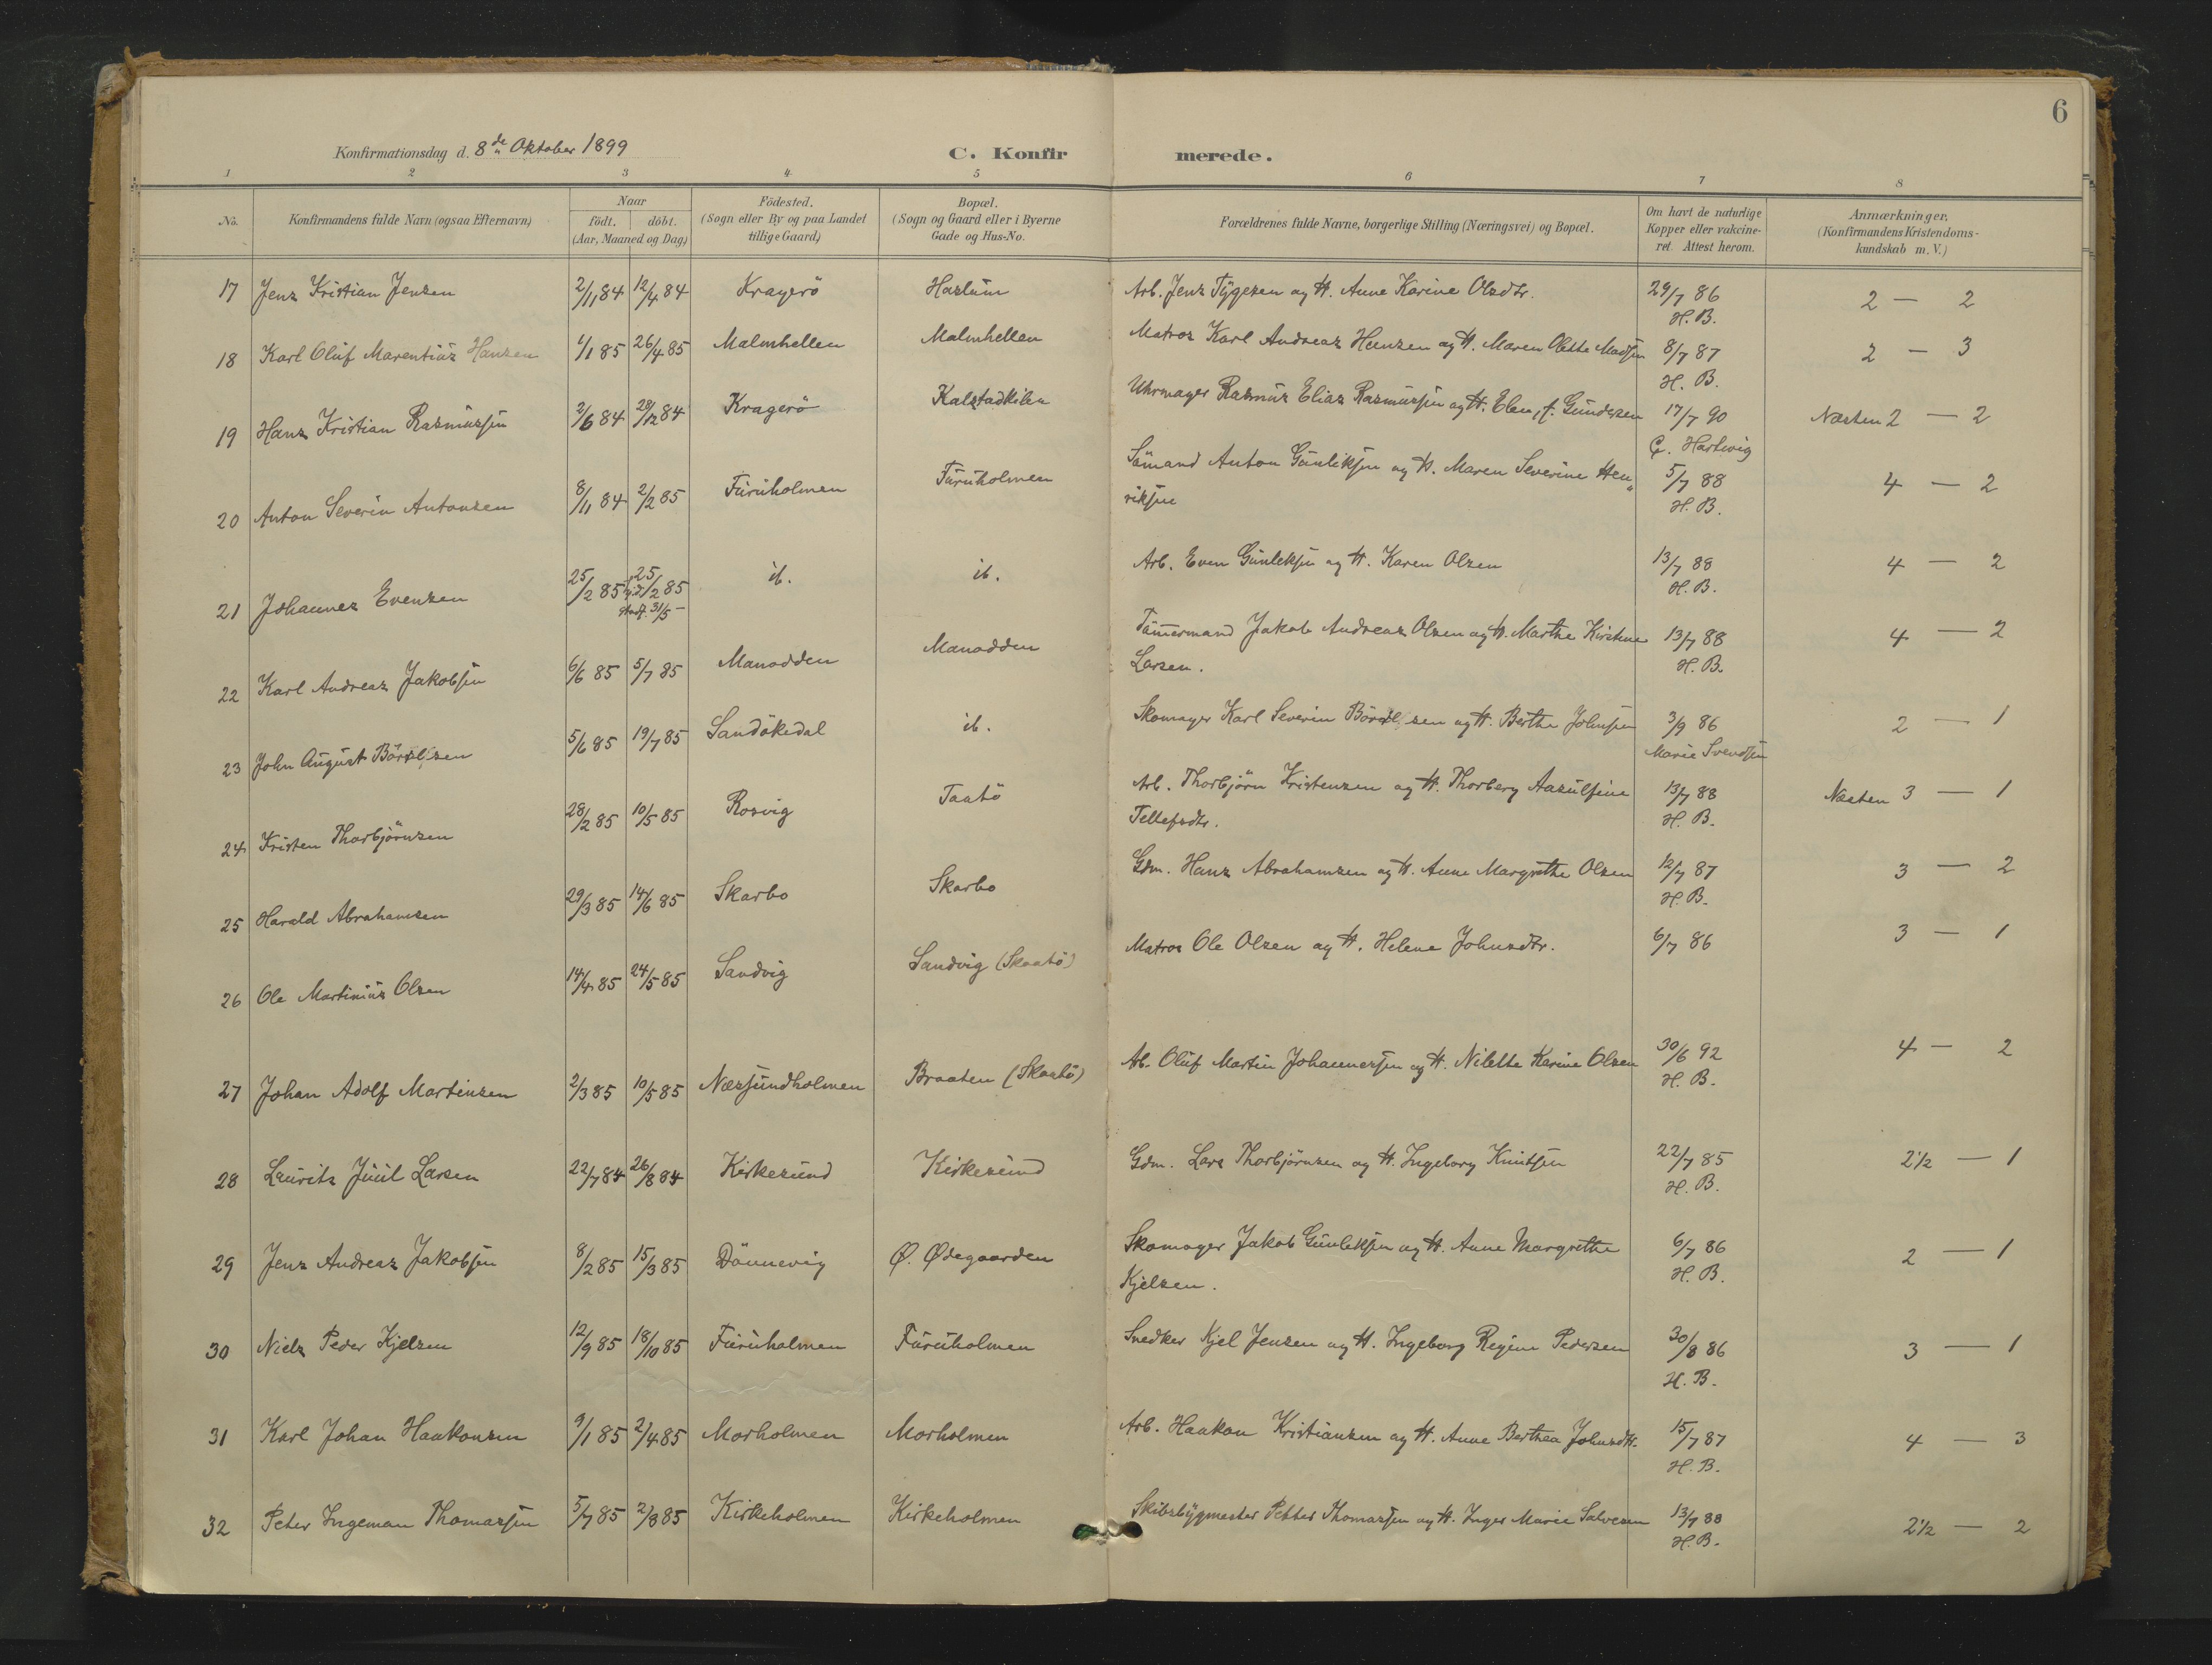 6
Konfirmationsdag d. 8de Oktober 1899
C. Konfirmerede.
1 2 3 4 5 6 7 8
No. Konfirmandens fulde Navn (ogsaa Efternavn) Naar Födested. Bopæl. Forældrenes fulde Navne, borgerlige Stilling (Næringsvei) og Bopæl. Om havt de naturlige Anmærkninger.
födt. döbt. (Sogn eller By og paa Landet (Sogn og Gaard eller i Byerne Kopper eller vakcine- (Konfirmandens Kristendoms-
(Aar, Maaned og Dag) tillige Gaard) Gade og Hus-No. ret. Attest herom. kundskab m. V.)
17 Jens Kristian Jensen 2/11 84 12/4 84 Kragerö Haslum Arb. Jens Tygesen og H. Anne Karine Olsdtr. 29/7 86 2 — 2
H. B.
18 Karl Oluf Marentius Hansen 1/1 85 26/4 85 Malmhellen Malmhellen Matros Karl Andreas Hansen og H. Maren Olette Madsen 8/7 87 2 — 3
H. B.
19 Hans Kristian Rasmussen 2/6 84 28/12 84 Kragerö Kalstadkilen Uhrmager Rasmus Elias Rasmussen og H. Elen, f. Gundersen 17/7 90 Næsten 2 — 2
C. Hartwig
20 Anton Severin Antonsen 8/11 84 2/2 85 Furuholmen Furuholmen Sömand Anton Gunleksen og H. Maren Severine Hen„ 5/7 88 4 — 2
riksen H. B.
21 Johannes Evensen 25/2 85 25/2 85 ib. ib. Arb. Even Gunleksen og H. Karen Olsen 13/7 88 4 — 2
stadf. 31/5 — H. B.
22 Karl Andreas Jakobsen 6/6 85 5/7 85 Manodden Manodden Tömmermand Jakob Andreas Olsen og H. Marthe Kirstine 13/7 88 4 — 2
Larsen. H. B.
23 John August Börselsen 5/6 85 19/7 85 Sandökedal ib. Skomager Karl Severin Börselsen og H. Berthe Johnsen 3/9 86 2 — 1
Marie Svendsen
24 Kristen Thorbjörnsen 28/2 85 10/5 85 Rosvig Taatö Arb. Thorbjörn Kristensen og H. Thorberg Aasulfine 13/7 88 Næsten 3 — 1
Tellefsdtr. H. B.
25 Harald Abrahamsen 29/3 85 14/6 85 Skarbo Skarbo Gdm. Hans Abrahamsen og H. Anne Margrethe Olsen 12/7 87 3 — 2
H. B.
26 Ole Martinius Olsen 14/4 85 24/5 85 Sandvig Sandvig (Skaatö) Matros Ole Olsen og H. Helene Johnsdtr. 6/7 86 3 — 1
27 Johan Adolf Martinsen 2/3 85 10/5 85 Næssundholmen Braaten (Skaatö) Ab. Oluf Martin Johannessen og H. Nilette Karine Olsen 30/6 92 4 — 2
H. B.
28 Laurits Juul Larsen 22/7 84 26/8 84 Kirkesund Kirkesund Gdm. Lars Thorbjörnsen og H. Ingeborg Knutsen 22/7 85 2½ — 1
H. B.
29 Jens Andreas Jakobsen 8/2 85 15/3 85 Dönnevig Ø. Ødegaarden Skomager Jakob Gunleksen og H. Anne Margrethe 6/7 86 2 — 1
Kjelsen. H. B.
30 Niels Peder Kjelsen 12/9 85 18/10 85 Furuholmen Furuholmen Snedker Kjel Jensen og H. Ingeborg Regine Pedersen 30/8 86 3 — 1
H. B.
31 Karl Johan Haakonsen 9/1 85 2/4 85 Morholmen Morholmen Arb. Haakon Kristiansen og H. Anne Berthea Johnsdtr. 15/7 87 4 — 3
H. B.
32 Peter Ingeman Thomassen 5/7 85 2/8 85 Kirkeholmen Kirkeholmen Skibsbygmester Petter Thomassen og H. Inger Marie Salvesen 13/7 88 2½ — 2
H. B.